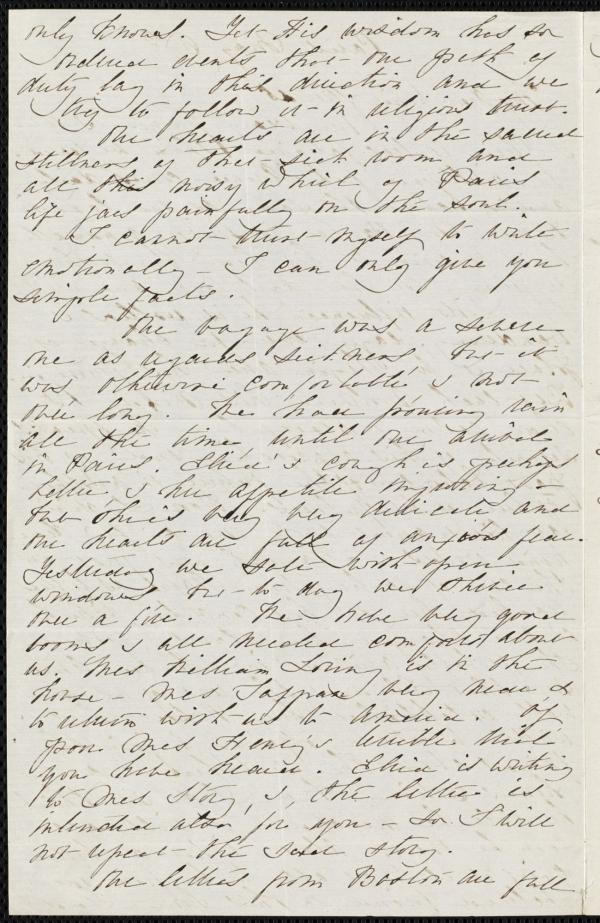 only knows. Yet His wisdom has so
ordered events that our path of
duty lay in this direction and we
try to follow it in religious trust.
Our hearts are in the sacred
stillness of that sick room and
all this noisy whirl of Paris
life jars painfully on the soul.
I cannot trust myself to write
emotionally – I can only give you
simple facts.
The voyage was a severe
one as regards sickness, but it
was otherwise comfortable & not
over long. We had pouring rain
all the time until our arrival
in Paris. 's cough is perhaps
better & her appetite improving –
but she is very very delicate and
our hearts are full of anxious fear.
Yesterday we sat with open
windows but to day we shiver
over a fire. We have very good
rooms & all needed comforts about
us. Mrs William Loring is in the
house – Mrs very near &
to return with us to America. Of
poor Mrs Henry's terrible trial
you have heard. is writing
to Mrs Story, & the letter is
intended also for you – so I will
not repeat the sad story.
Our letters from Boston are full